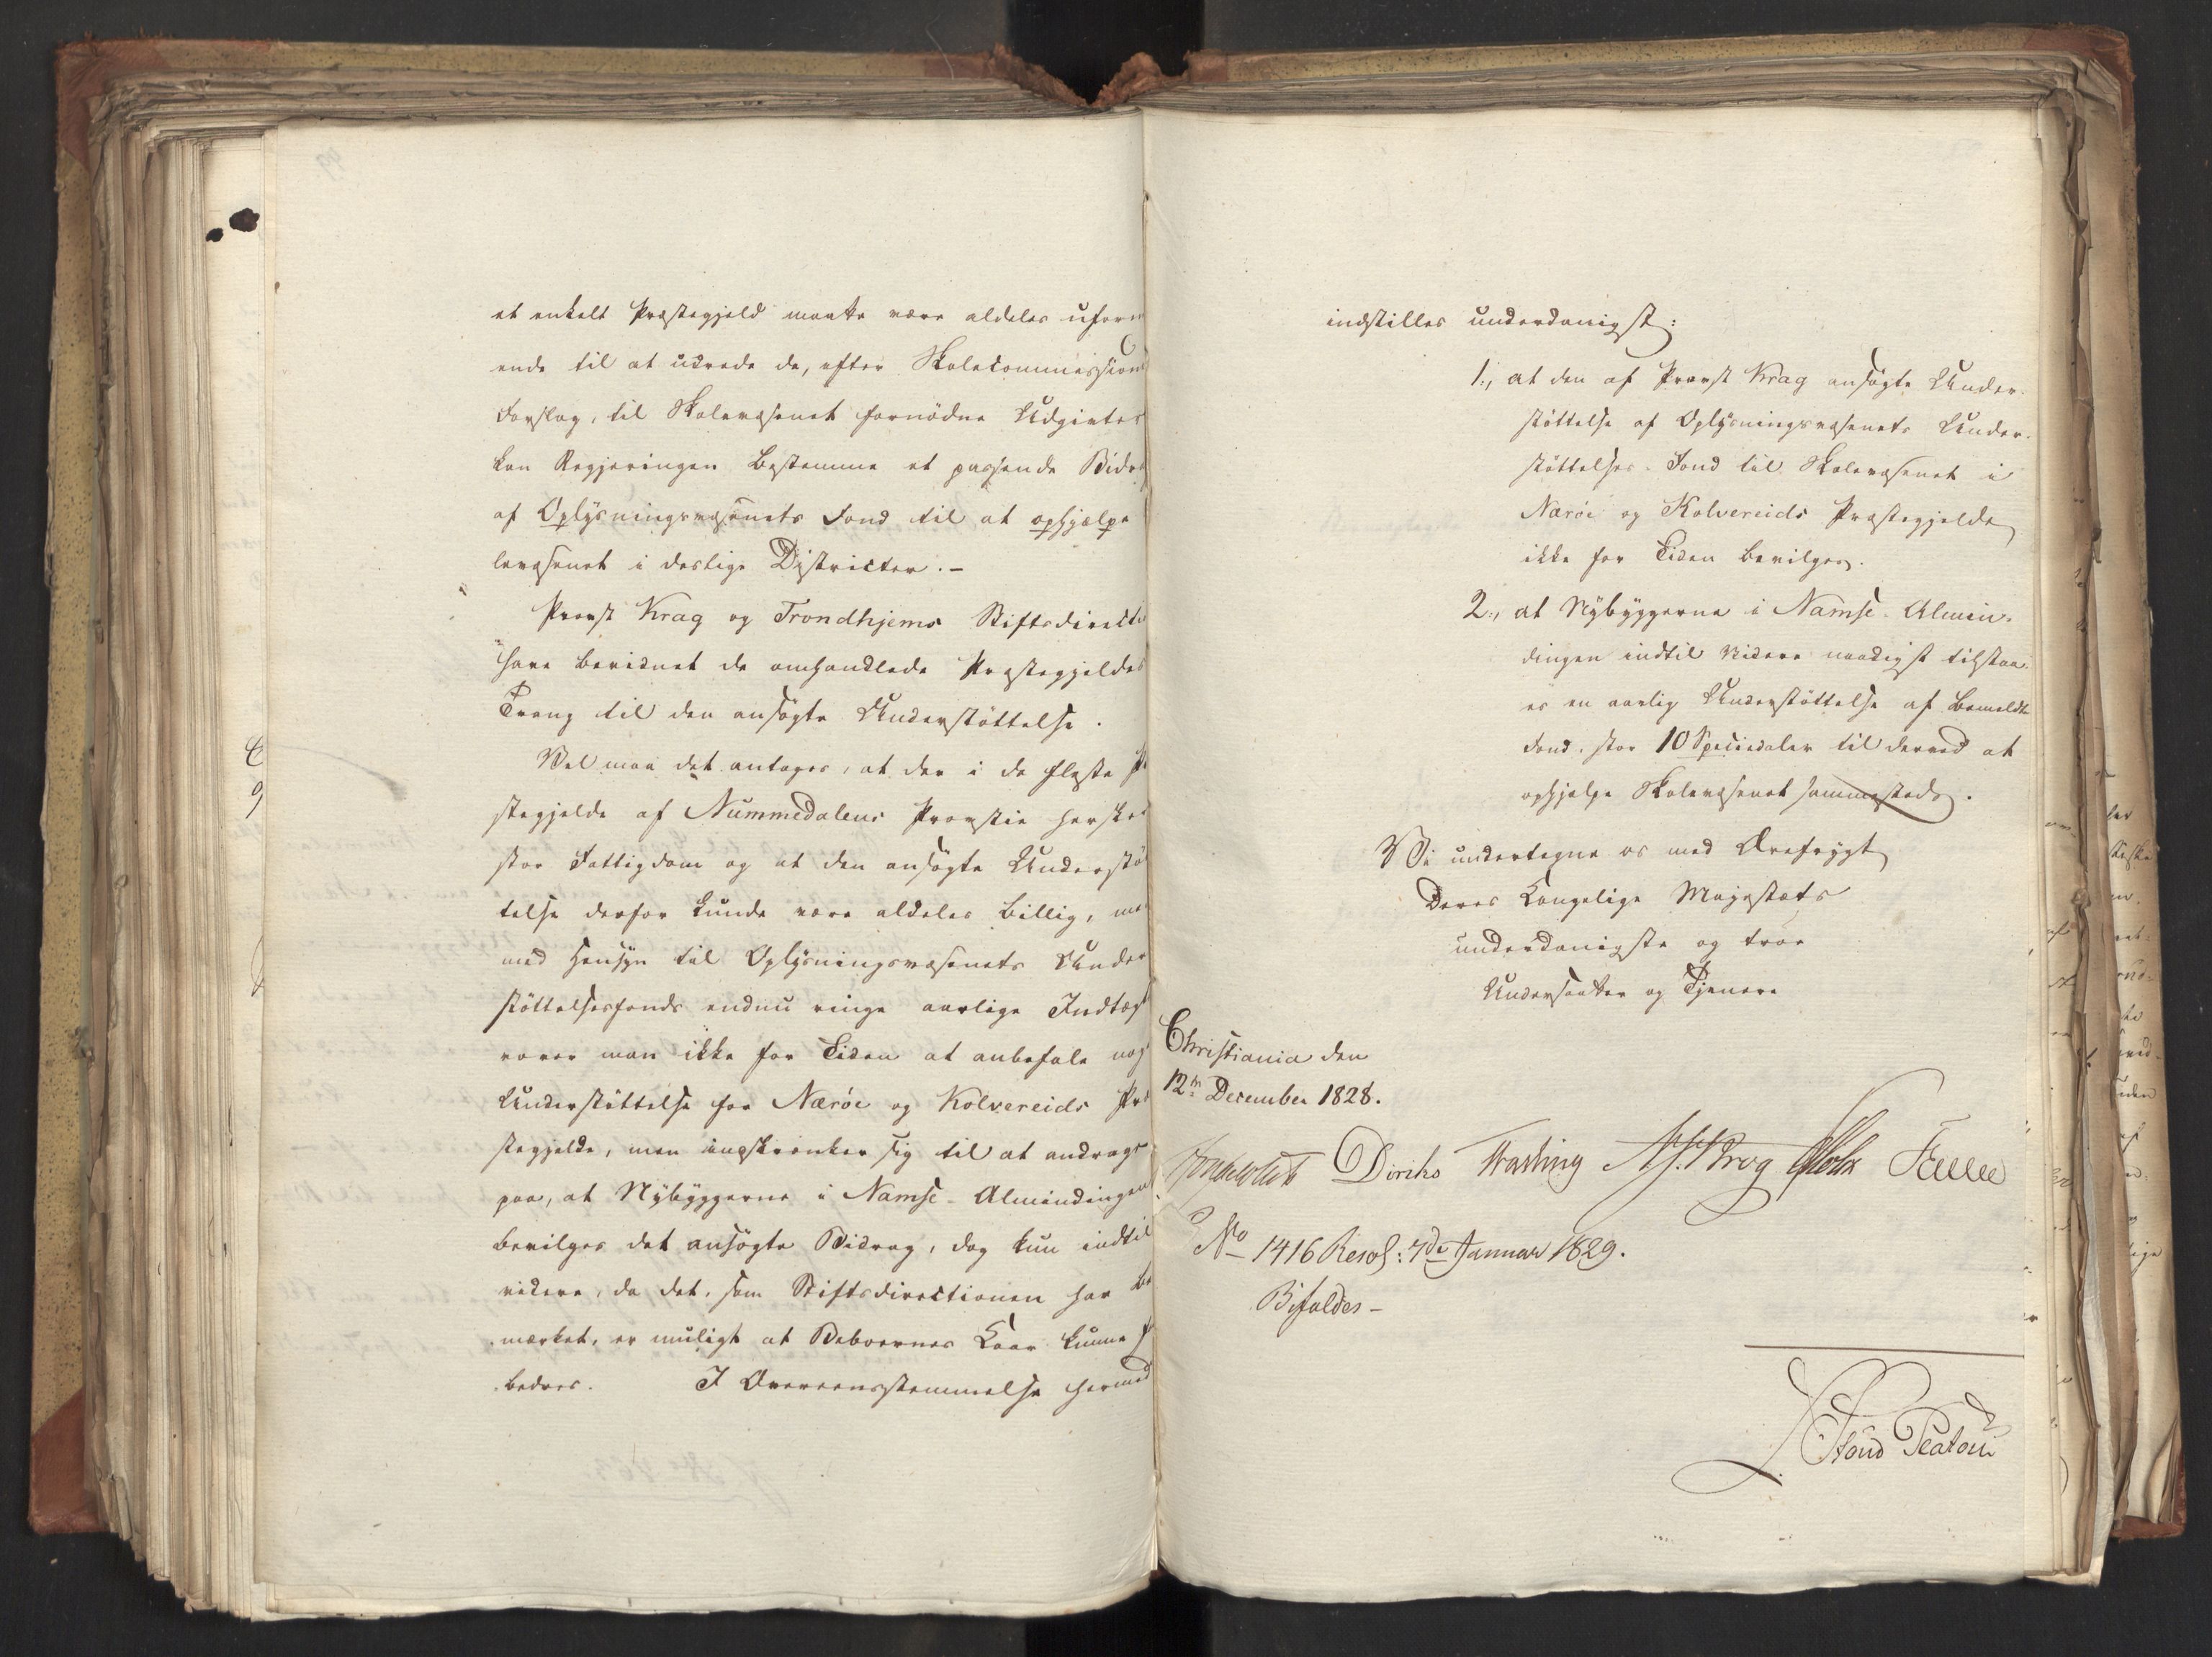 et enkelt Præstegjeld maatte være aldeles uform
ende til at udrede de, efter Skolecommissions
Forslag, til Skolevæsenet fornödne Udgivter
kan Regjeringen bestemme et passende Bidr
af Oplysningsvæsenets Fond til at ophjælpe
levæsenet i deslige Districter. -
Provst Krag og Trondhjems Stiftsdirecti
have bevidnet de omhandlede Præstegjeldes
Trang til den ansögte Understöttelse.
Vel maa det antages, at der i de fleste Pr
stegjelde af Nummedalens Provstie hersker
stor Fattigdom og at den ansögte Understöt
telse derfor kunde være aldeles billig, men
med Hensyn til Oplysningsvæsenets Under
stöttelsesfonds endnu ringe aarlige Indtægt
vover man ikke for Tiden at anbefale nog
Understöttelse for Nærøe og Kolvereids Præ
stegjelde, men indskrænker sig til at andrage
paa, at Nybyggerne i Namse-Almindingen
bevilges det ansögte Bidrag, dog kun indtil
videre, da det, som Stiftsdirectionen har be
mærket, er muligt at Beboernes Kaar kunne f
bedres. I Overeensstemmelse hermed
indstilles underdanigst:
1., at den af Provst Krag ansögte Under-
stöttelse af Oplysningsvæsenets Under-
stöttelses-Fond til Skolevæsenet i
Nærøe og Kolvereids Præstegjelde
ikke for Tiden bevilges.
2., at Nybyggerne i Namse-Almin-
dingen indtil Videre naadigst tilstaa-
es en aarlig Understöttelse af bemeldte
Fond, stor 10 Speciedaler til derved at
ophjælpe Skolevæsenet sammesteds.
Vi undertegne os med Ærefrygt
Deres Kongelige Majestæts
underdanigste og troe
Undersaatter og Tjenere
Christiania den
12te December 1828.
Diriks Krog Holst
No 1416 Resol: 7de Januar 1829.
Bifaldes -